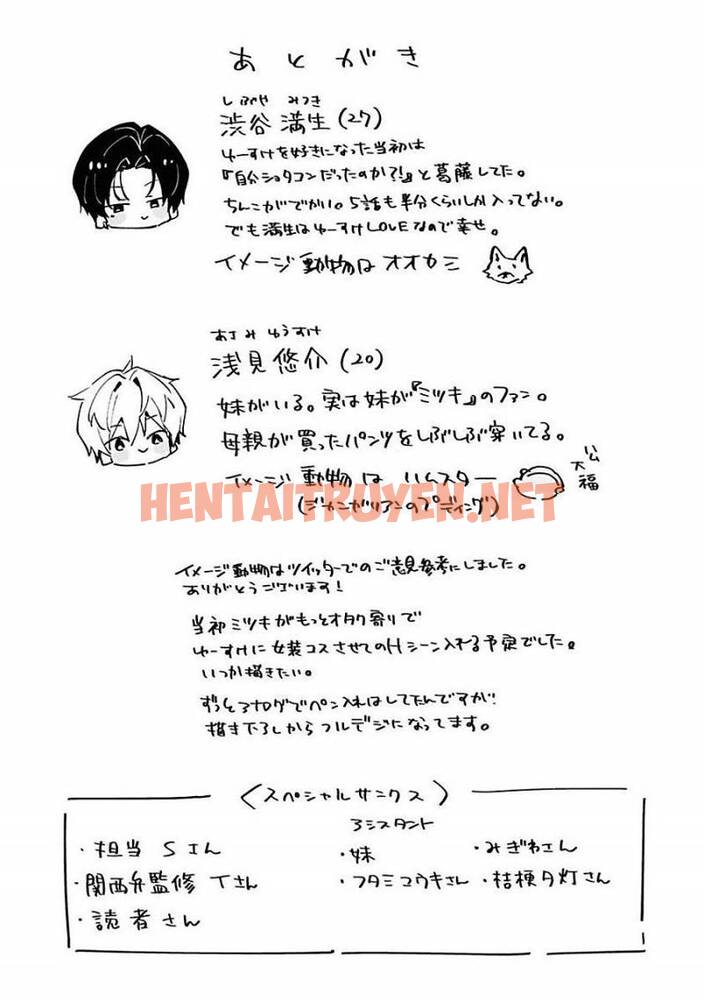 あとがき
しぶや みつき
渋谷 満生(27)
ゆーすけを好きになった当初は
『自分ショタコンだったのか?!』と葛藤してた。
ちんこがでかい。5話も半分くらいしか入ってない。
でも満生はゆーすけLOVEなので幸せ。
イメージ動物はオオカミ
あさみ ゆうすけ
浅見悠介(20)
妹がいる。実は妹が『ミツキ』のファン。
母親が買ったパンツをしぶしぶ穿いてる。
イメージ動物はハムスター
ハム大福
(ジャンガリアンのプディング)
HENTAITRUYEN.NET
イメージ動物はツイッターでのご意見参考にしました。
ありがとうございます!
当初ミツキがもっとオタク寄りで
ゆーすけに女装コスさせてのHシーン入れる予定でした。
いつか描きたい。
ずっとアナログでペン入れはしてたんですが!
描き下ろしからフルデジになってます。
〈スペシャルサンクス〉
・担当 Sさん
・関西弁監修 Tさん
・読者さん
アシスタント
・妹
・フタミユウキさん
・みぎわさん
・桔梗夕灯さん